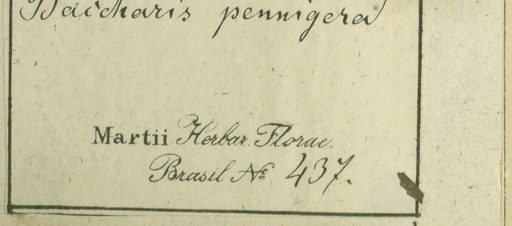 Baccharis pennigera
Martii Herbar. Florae.
Brasil No 437.